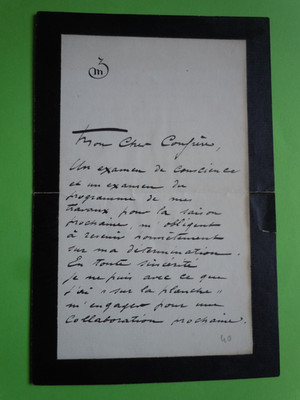 m
Mon Cher Confrère,
Un examen de conscience
et un examen du
programme de mes
travaux pour la saison
prochaine, m'obligent
à revenir honnêtement
sur ma détermination.
En toute sincérité
je ne puis avec ce que
j'ai « sur la planche »
m'engager pour une
collaboration prochaine.
40